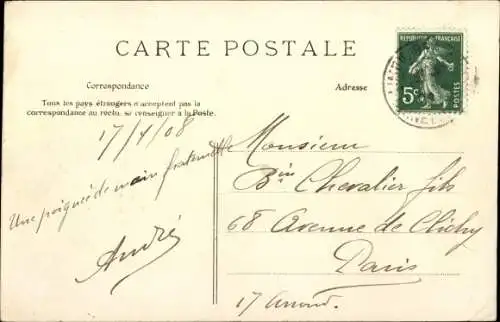 CARTE POSTALE
Correspondance
Tous les pays étrangers n'acceptent pas la
correspondance au recto, se renseigner à la Poste.
Adresse
REPUBLIQUE FRANÇAISE
5c
POSTES
17/4/08
Une poignée de main fraternelle
André
Monsieur
Bin Chevalier fils
68 Avenue de Clichy
Paris
17 Arrond.